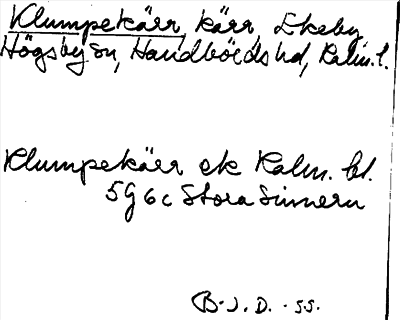 Klumpekärr, kärr, Ekeby
Högsby sn, Handbörds hd, Kalm. l.
Klumpekärr ek Kalm. bl.
5G 6c Stora Sinnern
B.J.D. - 55.